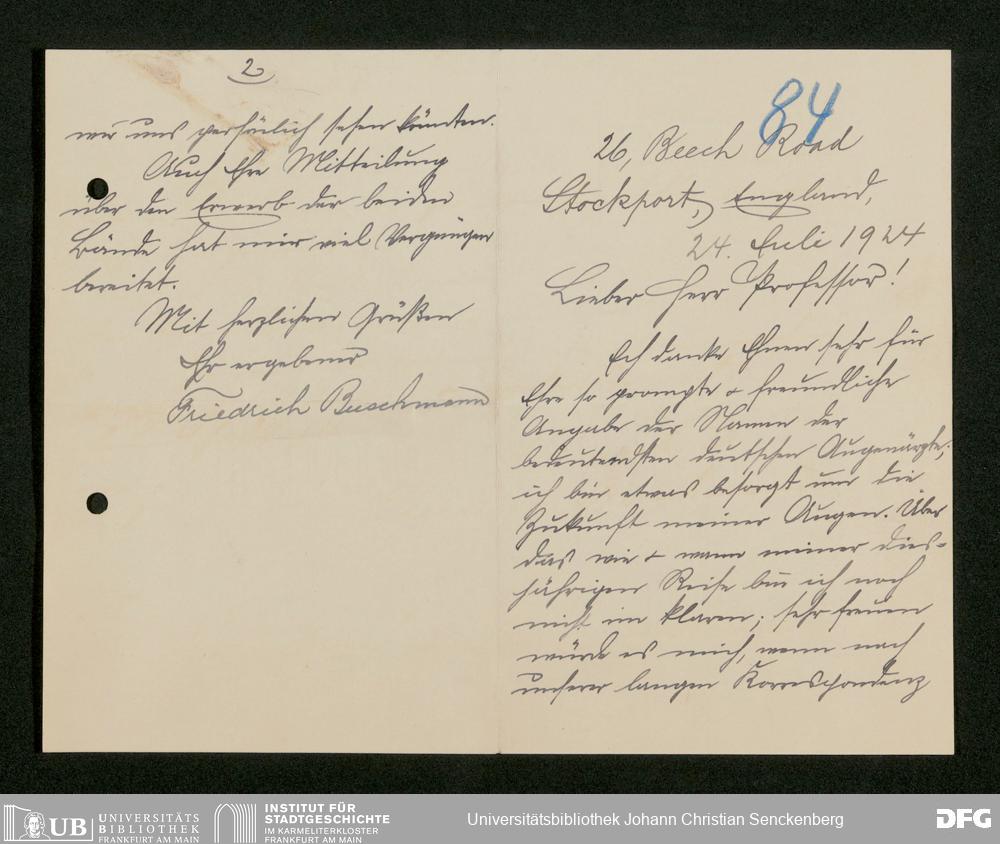 84
26, Beech Road
Stockport, England,
24. Juli 1924
Lieber Herr Professor!
Ich danke Ihnen sehr für
Ihre so prompte & freundliche
Angabe der Namen der
bedeutendsten deutschen Augenärzte;
ich bin etwas besorgt um die
Zukunft meiner Augen. Über
das wie & wann meiner dies-
jährigen Reise bin ich noch
nicht im klaren; sehr freuen
würde es mich, wenn nach
unserer langen Korrespondenz
2
wir uns persönlich sehen könnten.
Auch Ihre Mitteilung
über den Erwerb der beiden
Bände hat mir viel Vergnügen
bereitet.
Mit herzlichen Grüßen
Ihr ergebener
Friedrich Buschmann
UB UNIVERSITÄTS
BIBLIOTHEK
FRANKFURT AM MAIN
INSTITUT FÜR
STADTGESCHICHTE
IM KARMELITERKLOSTER
FRANKFURT AM MAIN
Universitätsbibliothek Johann Christian Senckenberg
DFG